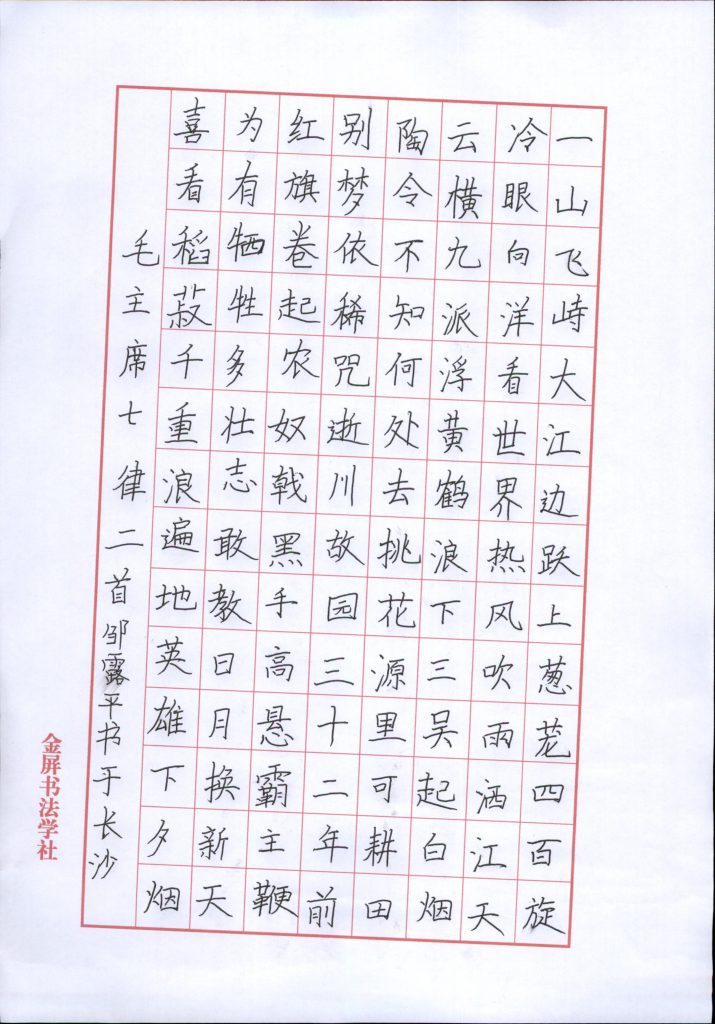 一山飞峙大江边跃上葱茏四百旋
冷眼向洋看世界热风吹雨洒江天
云横九派浮黄鹤浪下三吴起白烟
陶令不知何处去挑花源里可耕田
别梦依稀咒逝川故园三十二年前
红旗卷起农奴戟黑手高悬霸主鞭
为有牺牲多壮志敢教日月换新天
喜看稻菽千重浪遍地英雄下夕烟
毛主席七律二首邹露平书于长沙
金屏书法学社